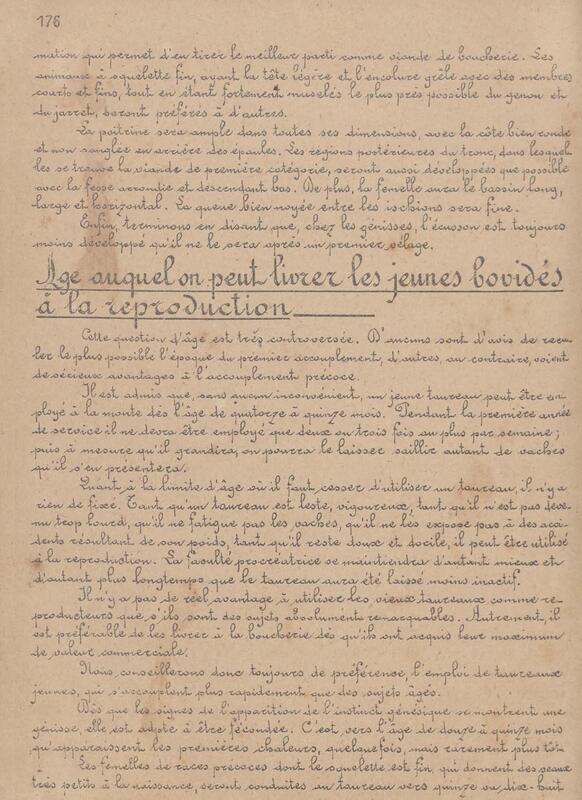 176
mation qui permet d'en tirer le meilleur parti comme viande de boucherie. Les
animaux à squelette fin, ayant la tête légère et l'encolure grêle avec des membres
courts et fins, tout en étant fortement musclés le plus près possible du genou et
du jarret, seront préférés à d'autres.
La poitrine sera ample dans toutes ses dimensions, avec la côte bien ronde
et non sanglée en arrière des épaules. Les régions postérieures du tronc, dans lesquel
les se trouve la viande de première catégorie, seront aussi développées que possible
avec la fesse arrondie et descendant bas. De plus, la femelle aura le bassin long,
large et horizontal. La queue bien noyée entre les ischions sera fine.
Enfin, terminons en disant que, chez les génisses, l'écusson est toujours
moins développé qu'il ne le sera après un premier vêlage.
Age auquel on peut livrer les jeunes bovidés
à la reproduction
Cette question d'âge est très controversée. D'aucuns sont d'avis de recu-
ler le plus possible l'époque du premier accouplement, d'autres, au contraire, voient
de sérieux avantages à l'accouplement précoce.
Il est admis que, sans aucun inconvénient, un jeune taureau peut être em-
ployé à la monte dès l'âge de quatorze à quinze mois. Pendant la première année
de service il ne devra être employé que deux ou trois fois au plus par semaine;
puis à mesure qu'il grandira, on pourra le laisser saillir autant de vaches
qu'il s'en présentera.
Quant à la limite d'âge où il faut cesser d'utiliser un taureau, il n'y a
rien de fixé. Tant qu'un taureau est leste, vigoureux, tant qu'il n'est pas deve-
nu trop lourd, qu'il ne fatigue pas les vaches, qu'il ne les expose pas à des acci-
dents résultant de son poids, tant qu'il reste doux et docile, il peut être utilisé
à la reproduction. La faculté procréatrice se maintiendra d'autant mieux et
d'autant plus longtemps que le taureau aura été laissé moins inactif.
Il n'y a pas de réel avantage à utiliser les vieux taureaux comme re-
producteurs que s'ils sont des sujets absolument remarquables. Autrement, il
est préférable de les livrer à la boucherie dès qu'ils ont acquis leur maximum
de valeur commerciale.
Nous conseillerons donc toujours de préférence, l'emploi de taureaux
jeunes, qui s'accouplent plus rapidement que des sujets âgés.
Dès que les signes de l'apparition de l'instinct génésique se montrent une
génisse, elle est adpte à être fécondée. C'est vers l'âge de douze à quinze mois
qu'apparaissent les premières chaleurs, quelquefois, mais rarement plus tôt.
Les femelles de races précoces dont le squelette est fin, qui donnent des veaux
très petits à la naissance, seront conduites au taureau vers quinze ou dix-huit